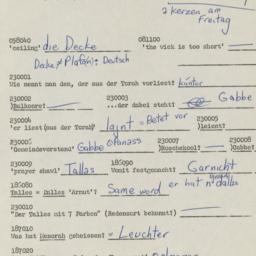 2 kerzen am
Freitag
058040 081100
'ceiling' die Decke 'the vick is too short'
Decke ≠ Plafo(n): Deutsch
230001
Wie nennt man den, der aus der Torah vorliest?
230002 230003
...der dabei steht? Gabbe
230004 230005
'er liest (aus der Torah)' laint = Betet vor 'leient'
230006 230007 230008
'Gemeindevorstand' Gabbe
230009 185090
'prayer shawl' Tallas Womit festgemacht? Garnicht
185080
Talles = Dalles 'Armut'? Same word er hat n' dalles
230010
"Der Talles mit 7 Farben" (Redensart bekannt?)
187010
Was hat Menorah geheissen? = Leuchter
187020